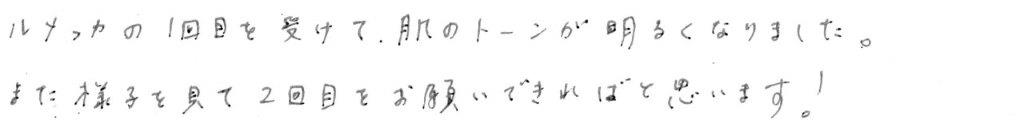 ルメッカの1回目を受けて、肌のトーンが明るくなりました。
また様子を見て2回目をお願いできればと思います!。